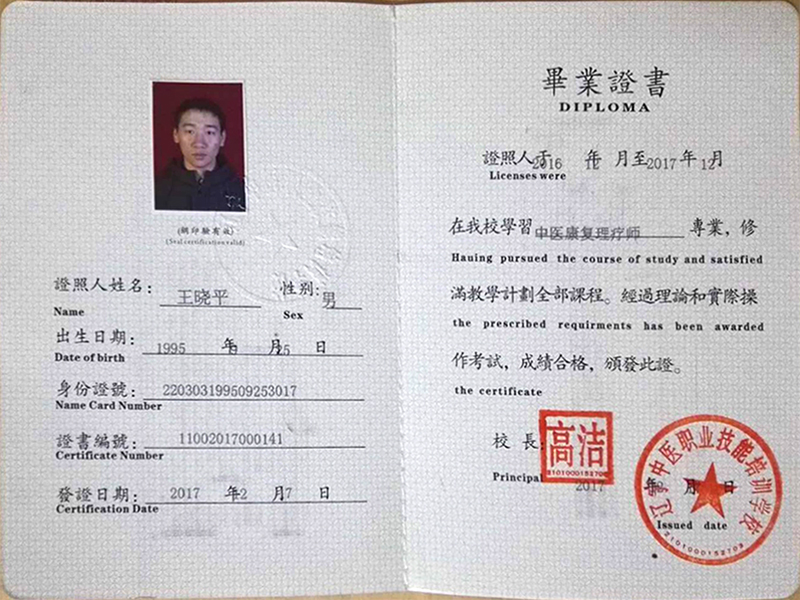 (鋼印驗有效)
(Seal certification valid)
證照人姓名： 王晓平 性别: 男
Name Sex
出生日期： 1995 年 9 月 25 日
Date of birth
身份證號： 220303199509253017
Name Card Number
證書編號： 11002017000141
Certificate Number
發證日期： 2017 年 月 7 日
Certification Date
畢業證書
DIPLOMA
證照人于 2016 年 12 月至 2017 年 12 月
Licenses were
在我校學習 中医康复理疗师 專業，修
Hauing pursued the course of study and satisfied
滿教學計劃全部課程。經過理論和實際操
the prescribed requirments has been awarded
作考試，成績合格，頒發此證。
the certificate
校長： 高洁
2101000152702
Principal 2017 年 月 日
Issued date
辽宁中医职业技能培训学校
2101000152702